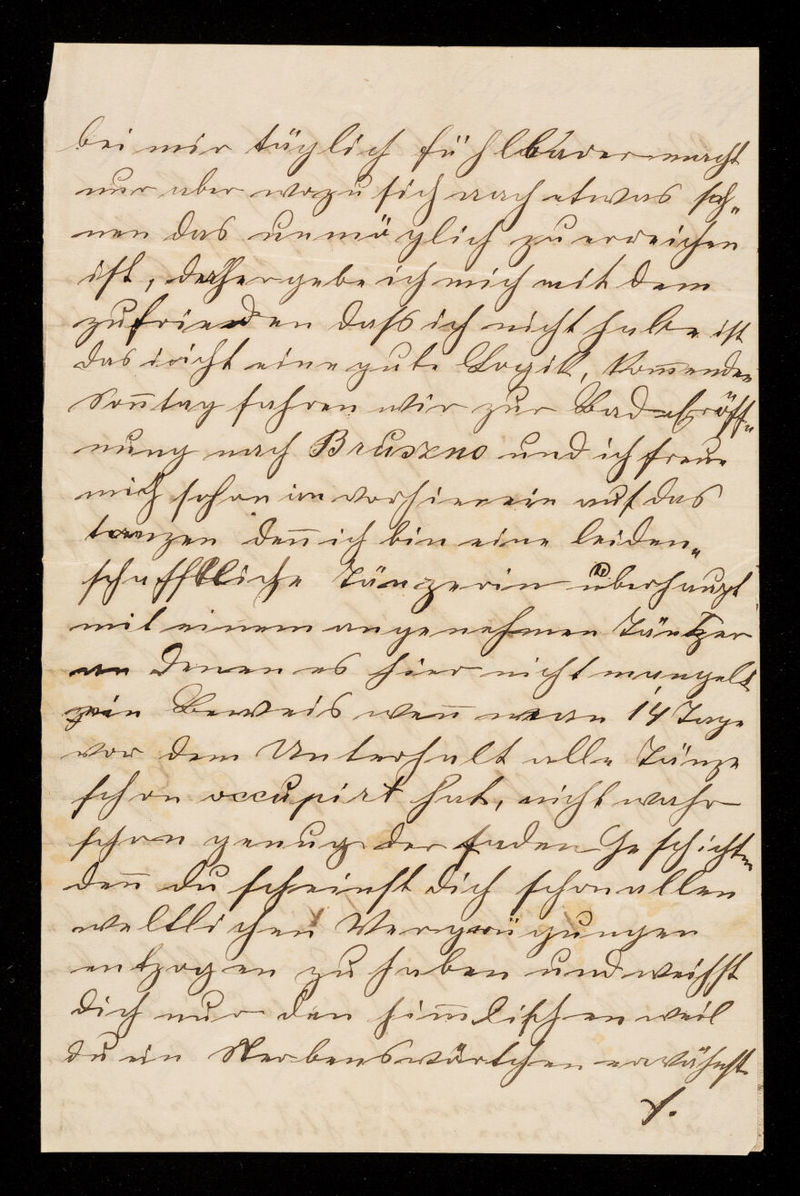 bei mir täglich fühlbarer macht
nur aber wozu sich nach etwas seh„
nen das unmöglich zu erreichen
ist, daher gebe ich mich mit dem
zufrieden dass ich nicht habe ist
das nicht eine gute Logik, Kom̅enden
Son̅tag fahren wir zur Bad Eröff„
nung nach Bruszno und ich freue
mich schon im vorhienein auf das
tanzen den̅ ich bin eine leiden„
schafftliche Tänzerin überhaupt
mit einem angenehmen Täntzer
an denen es hier nicht mangelt
ein Beweis wen̅ man 14 Tage
vor dem Unterhalt alle Tänze
schon occupirt hat, nicht wahr
schon genug der faden Geschichten
den̅ du scheinst dich schon allen
weltlichen Vergnügungen
entzogen zu haben und weihst
dich nur den him̅lischen weil
du ein Sterbenswörtchen erwähnst